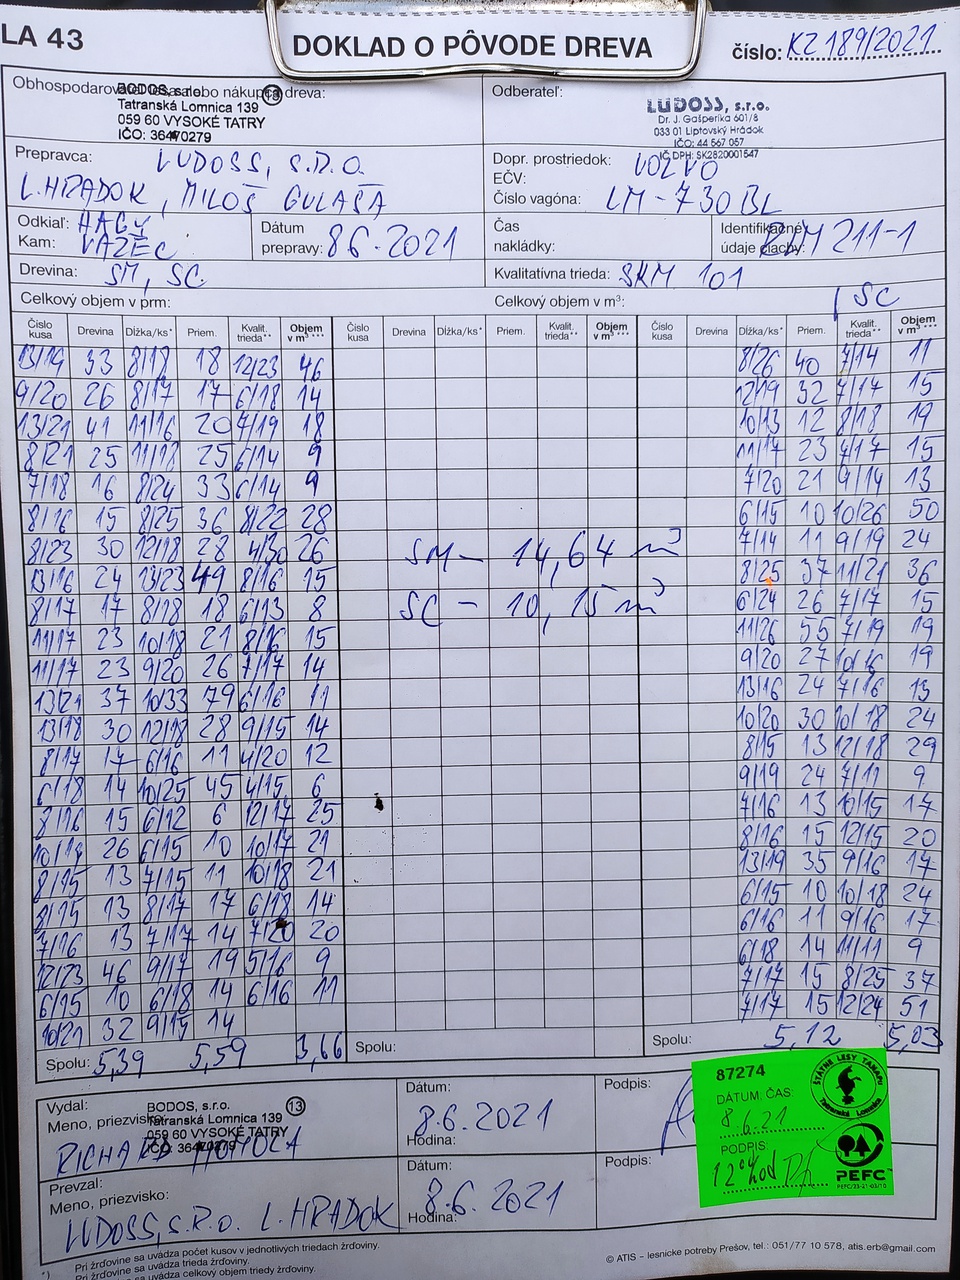 LA 43
DOKLAD O PÔVODE DREVA
číslo: KZ 189/2021
Obhospodarovateľ lesa alebo nákupca dreva:
BODOS, s.r.o. 13
Tatranská Lomnica 139
059 60 VYSOKÉ TATRY
IČO: 36470279
Odberateľ:
LUDOSS, s.r.o.
Dr. J. Gašperíka 601/8
033 01 Liptovský Hrádok
IČO: 44 567 057
IČ DPH: SK2820001547
Prepravca: LUDOSS, S.R.O.
L. HRADOK, MILOŠ GULAŠA
Dopr. prostriedok: VOLVO
EČV:
Číslo vagóna: LM-730BL
Odkiaľ: HAGY
Kam: VAZEC
Dátum
prepravy: 8.6.2021
Čas
nakládky:
Identifikačné
údaje ciachy: 211-1
Drevina: SM, SC.
Kvalitatívna trieda: SKM 101
Celkový objem v prm:
Celkový objem v m³:
SC
Číslo kusa Drevina Dĺžka/ks* Priem. Kvalit. trieda** Objem v m³ *** Číslo kusa Drevina Dĺžka/ks* Priem. Kvalit. trieda** Objem v m³ *** Číslo kusa Drevina Dĺžka/ks* Priem. Kvalit. trieda** Objem v m³ ***
13/19 33 8/18 18 12/23 46 8/26 40 7/14 11
9/20 26 8/17 17 6/18 14 12/19 32 7/17 15
13/21 41 11/16 20 7/19 18 10/13 12 8/18 19
8/21 25 11/18 25 6/14 9 11/17 23 7/17 15
7/18 16 8/24 33 6/14 9 7/20 21 9/14 13
8/16 15 8/25 36 8/22 28 6/15 10 10/26 50
8/23 30 12/18 28 4/30 26 SM - 14,64 m³ 7/14 11 9/19 24
13/16 24 13/23 49 8/16 15 8/25 37 11/21 36
8/17 17 8/18 18 6/13 8 SC - 10,15 m³ 6/24 26 7/17 15
11/17 23 10/18 21 8/16 15 11/26 55 7/19 19
11/17 23 9/20 26 7/17 14 9/20 27 10/16 19
13/21 37 10/33 79 6/16 11 13/16 24 7/16 13
13/18 30 12/18 28 9/15 14 10/20 30 10/18 24
8/17 17 6/16 11 4/20 12 8/15 13 12/18 29
6/18 14 10/25 45 4/15 6 9/19 24 7/11 9
8/16 15 6/12 6 12/17 25 7/16 13 10/15 17
10/19 26 6/15 10 10/17 21 8/16 15 12/15 20
8/15 13 7/15 11 10/18 21 13/19 35 9/16 17
8/15 13 8/17 17 6/18 14 6/15 10 10/18 24
7/16 13 7/17 14 7/20 20 6/16 11 9/16 17
12/23 46 9/17 19 5/16 9 6/18 14 11/11 9
6/15 10 6/18 14 6/16 11 7/17 15 8/25 37
10/21 32 9/15 14 7/17 15 12/24 51
Spolu: 5,39 5,59 3,66 Spolu: Spolu: 5,12 5,03
Vydal:
Meno, priezvisko:
BODOS, s.r.o. 13
Tatranská Lomnica 139
059 60 VYSOKÉ TATRY
IČO: 36470279
RICHARD
Dátum:
8.6.2021
Hodina:
Podpis:
87274
DÁTUM: ČAS:
8.6.21
PODPIS:
1200 hod
ŠTÁTNE LESY TANAPU
Tatranská Lomnica
PEFC
PEFC/23-21-03/10
Prevzal:
Meno, priezvisko:
LUDOSS, S.R.O. L. HRADOK
Dátum:
8.6.2021
Hodina:
Podpis:
*) Pri žrďovine sa uvádza počet kusov v jednotlivých triedach žrďoviny.
Pri žrďovine sa uvádza trieda žrďoviny.
Pri žrďovine sa uvádza celkový objem triedy žrďoviny.
© ATIS – lesnícke potreby Prešov, tel.: 051/77 10 578, atis.erb@gmail.com